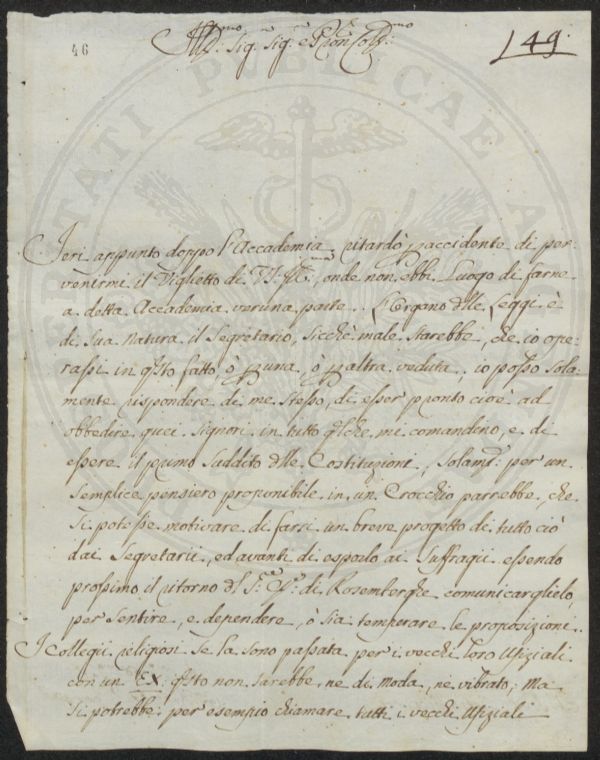 46
149.
Ill.mo Sig. Sig. e Pron Coll.mo
Jeri appunto doppo l'Accademia ritardò p accidente di per-
venirmi il Viglietto di V. S. Ill.ma, onde non ebbi Luogo di farne
a detta Accademia veruna parte. L'Organo dlle Leggi è
di sua natura il Segretario, sicchè male starebbe, che io ope-
rassi in qsto fatto ò p una, ò p altra veduta, io posso sola-
mente rispondere di me stesso, di esser pronto cioè ad
obbedire quei Signori in tutto qlche mi comandino, e di
essere il primo suddito dlle Costituzioni, solamte per un
semplice pensiero proponibile in un Crocchio parrebbe, che
si potesse motivare di farsi un breve progetto di tutto ciò
dai Segretarii, ed avanti di esporlo ai Suffragii essendo
prossimo il ritorno dl S. di Rosemberghe comunicarglielo,
per sentire, e dependere, ò sia temperare le proposizioni.
I Collegii religiosi se la sono passata per i vecchi loro Ufiziali
con un Ex. qsto non sarebbe ne di moda, ne vibrato; Ma
si potrebbe per esempio chiamare tutti i vecchi Ufiziali
PUBLICAE